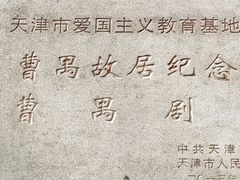 天津市爱国主义教育基地
曹禺故居纪念
曹禺剧
中共天津
天津市人民
二〇一